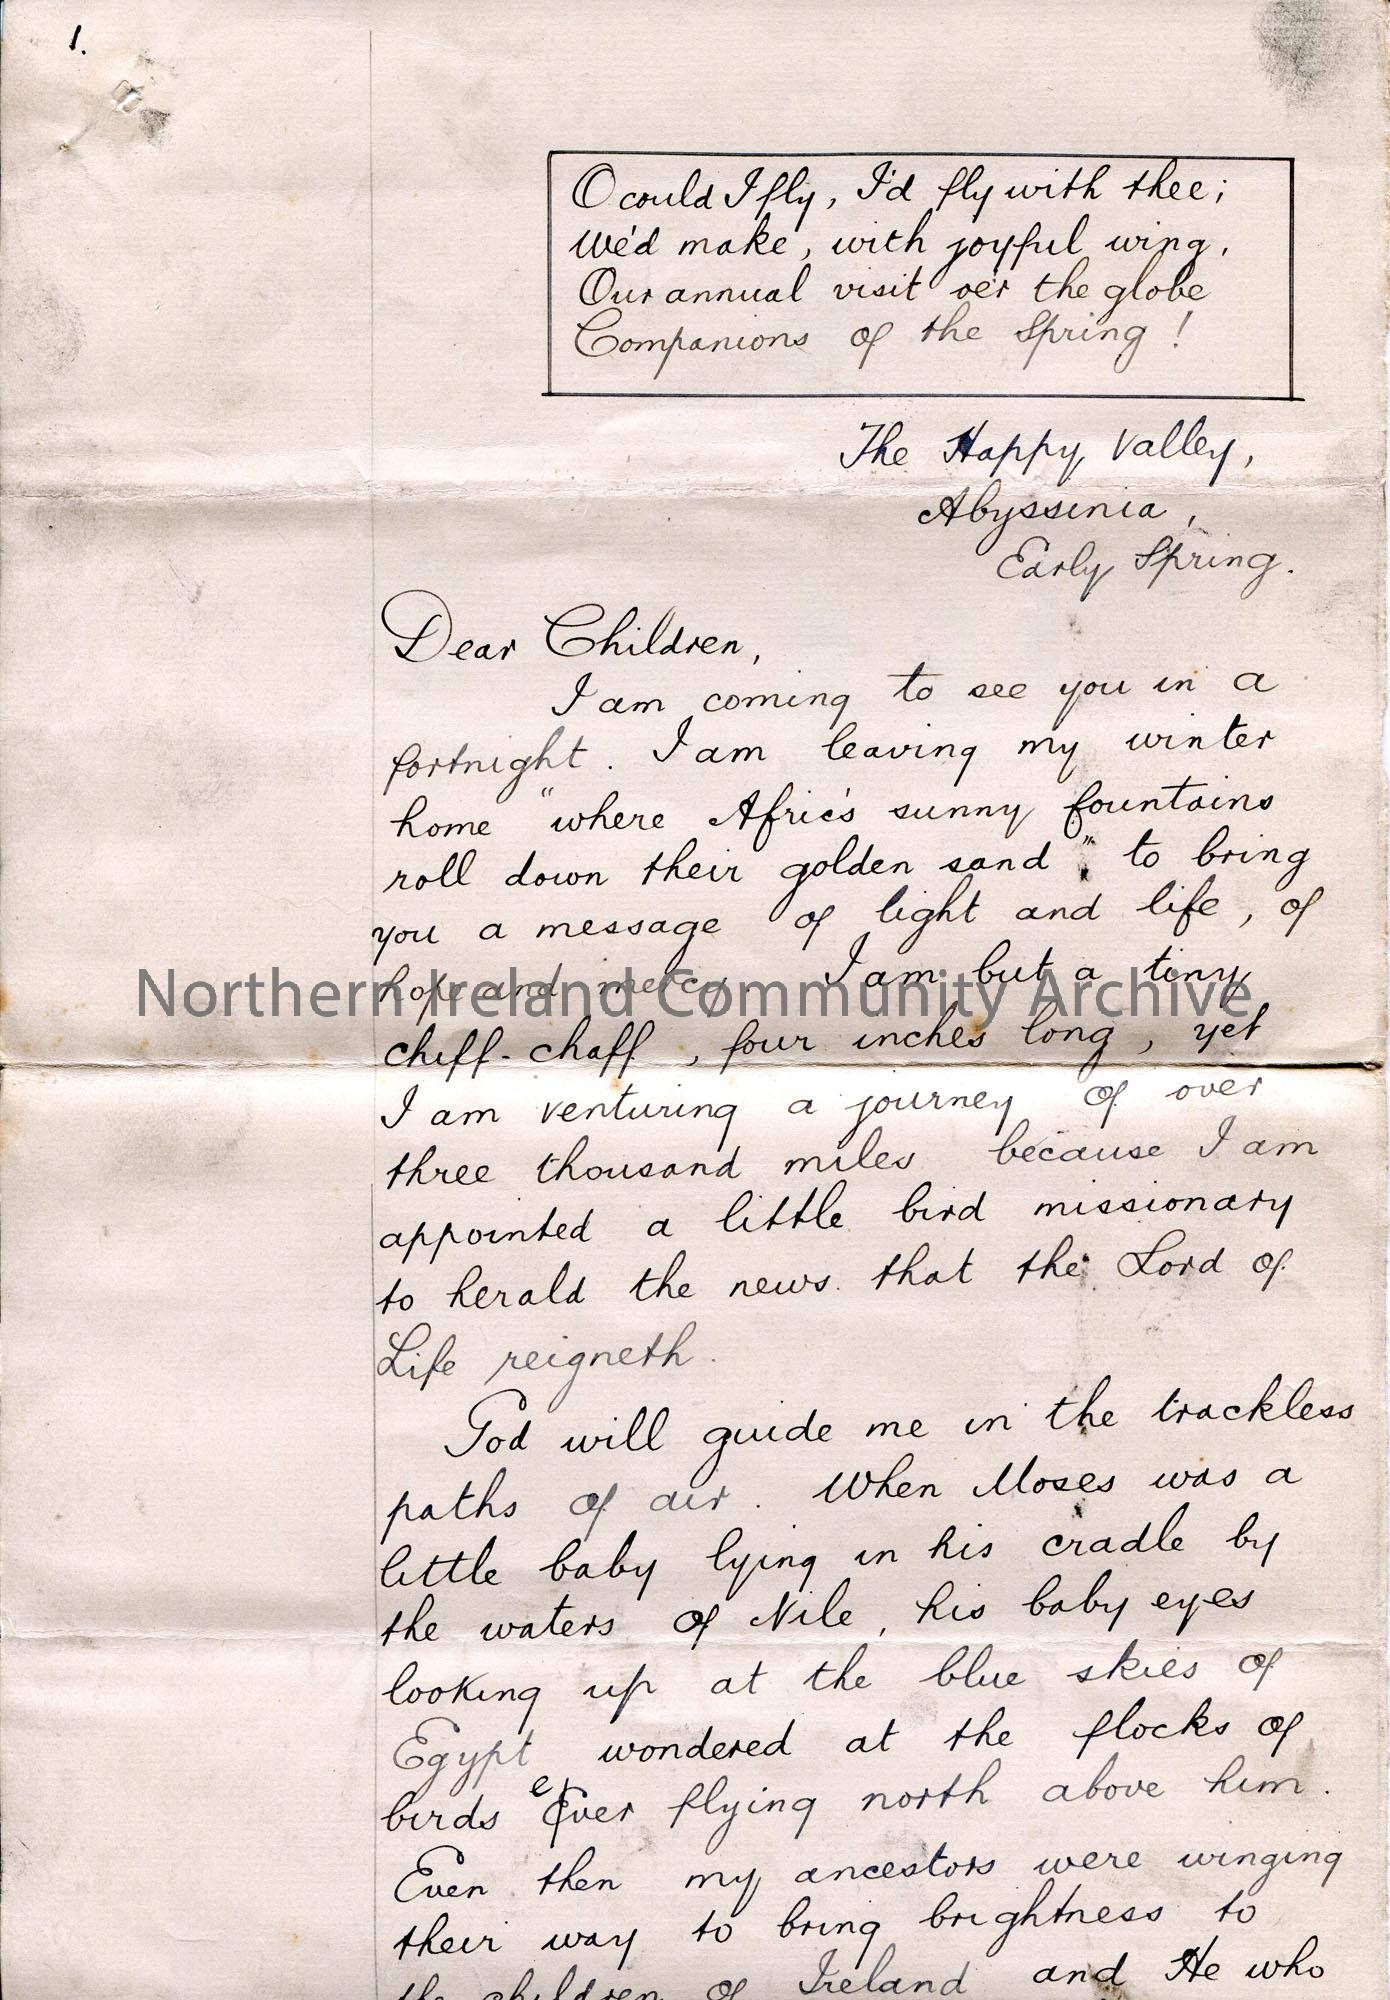 1.
O could I fly, I'd fly with thee;
We'd make, with joyful wing,
Our annual visit oe'r the globe
Companions of the Spring!
The Happy Valley,
Abyssinia,
Early Spring.
Dear Children,
I am coming to see you in a
fortnight. I am leaving my winter
home "where Afric's sunny fountains
roll down their golden sand", to bring
you a message of light and life, of
hope and mercy. I am but a tiny
Northern Ireland Community Archive
chiff-chaff, four inches long, yet
I am venturing a journey of over
three thousand miles because I am
appointed a little bird missionary
to herald the news that the Lord of
Life reigneth.
God will guide me in the trackless
paths of air. When Moses was a
little baby lying in his cradle by
the waters of Nile, his baby eyes
looking up at the blue skies of
Egypt wondered at the flocks of
birds ever flying north above him.
Even then my ancestors were winging
their way to bring brightness to
the children of Ireland and He who